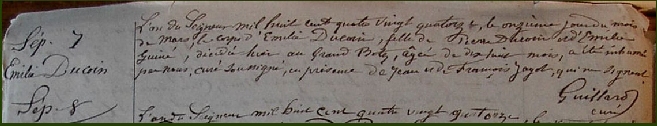 Sép. 7
Emilie Ducoin
L'an du Seigneur mil huit cent quatre vingt quatorze, le onzième jour du mois
de mars, le corps d'Emilie Ducoin, fille de Pierre Ducoin et d'Emilie
décédée hier au Grand âgée de dix huit mois, a été inhumé
par nous, curé soussigné, en présence de Jean et de François qui ne signent.
Guillard
curé
Sép. 8
L'an du Seigneur mil huit cent quatre vingt quatorze